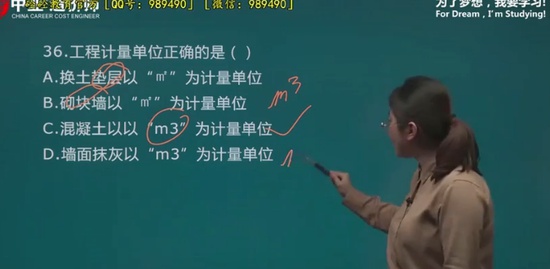 [QQ号：989490] [微信：989490]
为了梦想，我要学习！
CHINA CAREER COST ENGINEER
For Dream , I'm Studying!
36.工程计量单位正确的是（ ）
A.换土垫层以“㎡”为计量单位
B.砌块墙以“㎡”为计量单位 m³
C.混凝土以以“m3”为计量单位
D.墙面抹灰以“m3”为计量单位